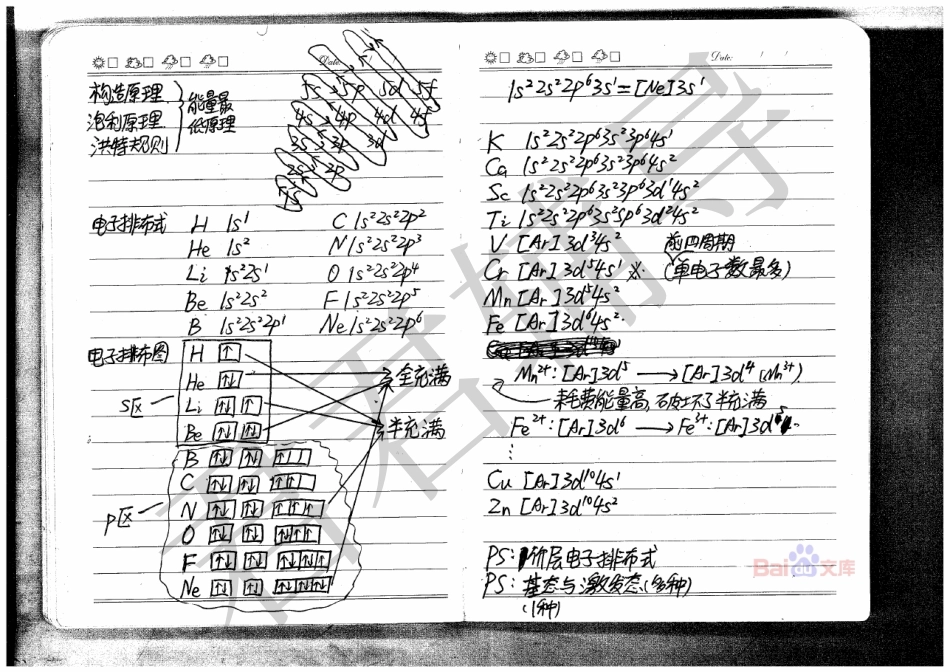 Date:
构造原理
泡利原理
洪特规则
能量最
低原理
5s 5p 5d 5f
4s 4p 4d 4f
3s 3p 3d
2s 2p
1s
电子排布式 H 1s¹ C 1s²2s²2p²
He 1s² N 1s²2s²2p³
Li 1s²2s¹ O 1s²2s²2p⁴
Be 1s²2s² F 1s²2s²2p⁵
B 1s²2s²2p¹ Ne 1s²2s²2p⁶
电子排布图 H ↑
He ↑↓ 全充满
s区 Li ↑↓ ↑
Be ↑↓ ↑↓ 半充满
B ↑↓ ↑↓ ↑
C ↑↓ ↑↓ ↑↑
p区 N ↑↓ ↑↓ ↑↑↑
O ↑↓ ↑↓ ↑↓↑↑
F ↑↓ ↑↓ ↑↓↑↓↑
Ne ↑↓ ↑↓ ↑↓↑↓↑↓
Date:
1s²2s²2p⁶3s¹=[Ne]3s¹
K 1s²2s²2p⁶3s²3p⁶4s¹
Ca 1s²2s²2p⁶3s²3p⁶4s²
Sc 1s²2s²2p⁶3s²3p⁶3d¹4s²
Ti 1s²2s²2p⁶3s²sp⁶3d²4s²
V [Ar]3d³4s² 前四周期
Cr [Ar]3d⁵4s¹ ※ (单电子数最多)
Mn [Ar]3d⁵4s²
Fe [Ar]3d⁶4s²
Mn²⁺:[Ar]3d⁵ → [Ar]3d⁴ (Mn³⁺)
耗费能量高,破坏了半充满
Fe²⁺:[Ar]3d⁶ → Fe³⁺:[Ar]3d⁵
⋮
Cu [Ar]3d¹⁰4s¹
Zn [Ar]3d¹⁰4s²
PS: 价层电子排布式
PS: 基态与激发态(多种)
(1种)
Bai du 文库